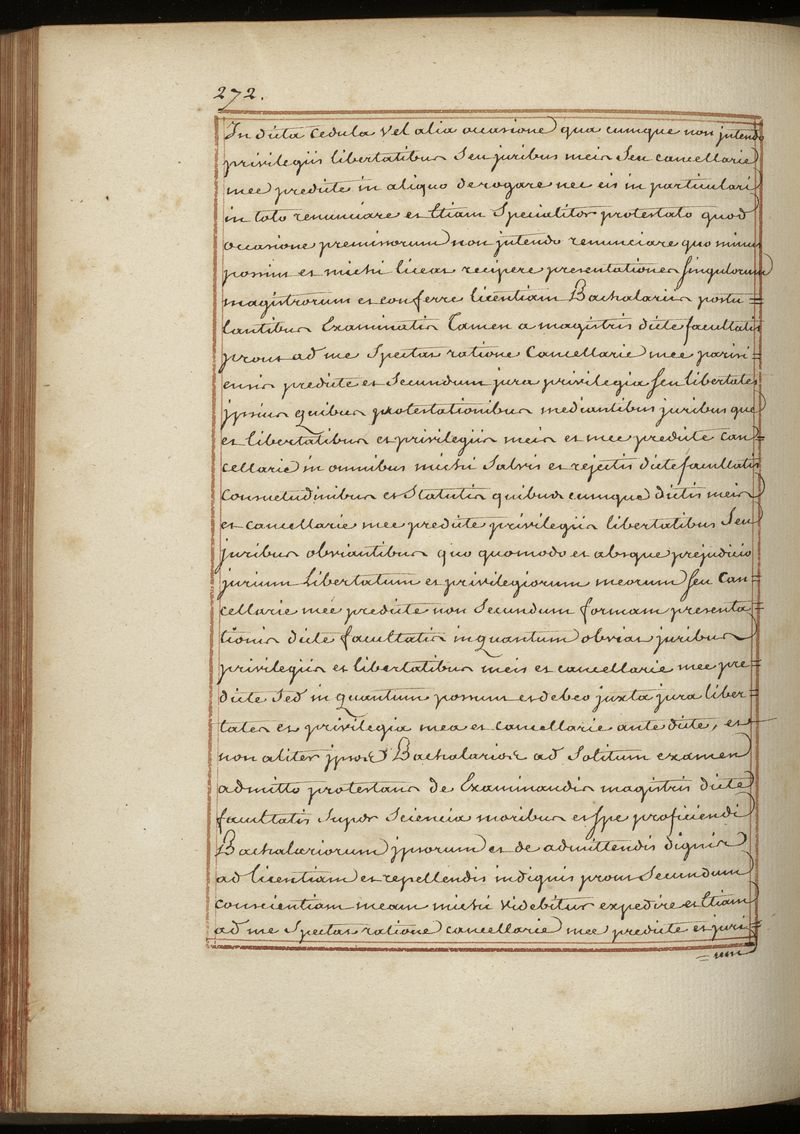 272.
In dicta cedula vel alia occasione qua cumque non jntendo
privilegiis libertatibus Seu juribus meis Seu cancellarie
mee predicte in aliquo derogare nec eis in particulari
in toto renunciare et Etiam Specialiter protestato quod
occasione premissorum non jntendo renunciare quo minus
possim et michi liceat recipere presentationes singulorum
magistrorum et conferre licentiam Bachalariis postu=
lantibus Examinatis Tamen a magistris dicte facultatis
prout ad me Spectat ratione Cancellarie mee parisi=
ensis predicte et Secundum jura privilegia seu libertates
jpsius quibus protestationibus mediantibus juribus que
et libertatibus et privilegiis meis et mee predicte can=
cellarie in omnibus michi Salvis et rejectis dicte facultatis
Consuetudinibus et Statutis quibus cumque dictis meis
et cancellarie mee predicte privilegiis libertatibus Seu
juribus obviantibus quo quomodo et absque prejudicio
jurium Libertatum et privilegiorum meorum seu Can=
cellarie mee predicte non Secundum formam presenta=
tionis dicte facultatis inquantum obviat juribus
privilegiis et libertatibus meis et cancellarie mee pre=
dicte Sed in quantum possum et debeo juxta jura liber=
tates et privilegia mea et cancellarie ante dicte, et
non aliter jpsos Bachalarios ad Solitum examen
admitto protestans de Examinandis magistris dicte
facultatis Super Sciencia moribus et spe proficiendi
Bachalariorum jpsorum et de admittendis dignis
ad licentiam et repellendis indignis prout Secundum
conscientiam meam michi videbitur expedire et Etiam
ad me Spectat ratione cancellarie mee predicte et juri=
=um